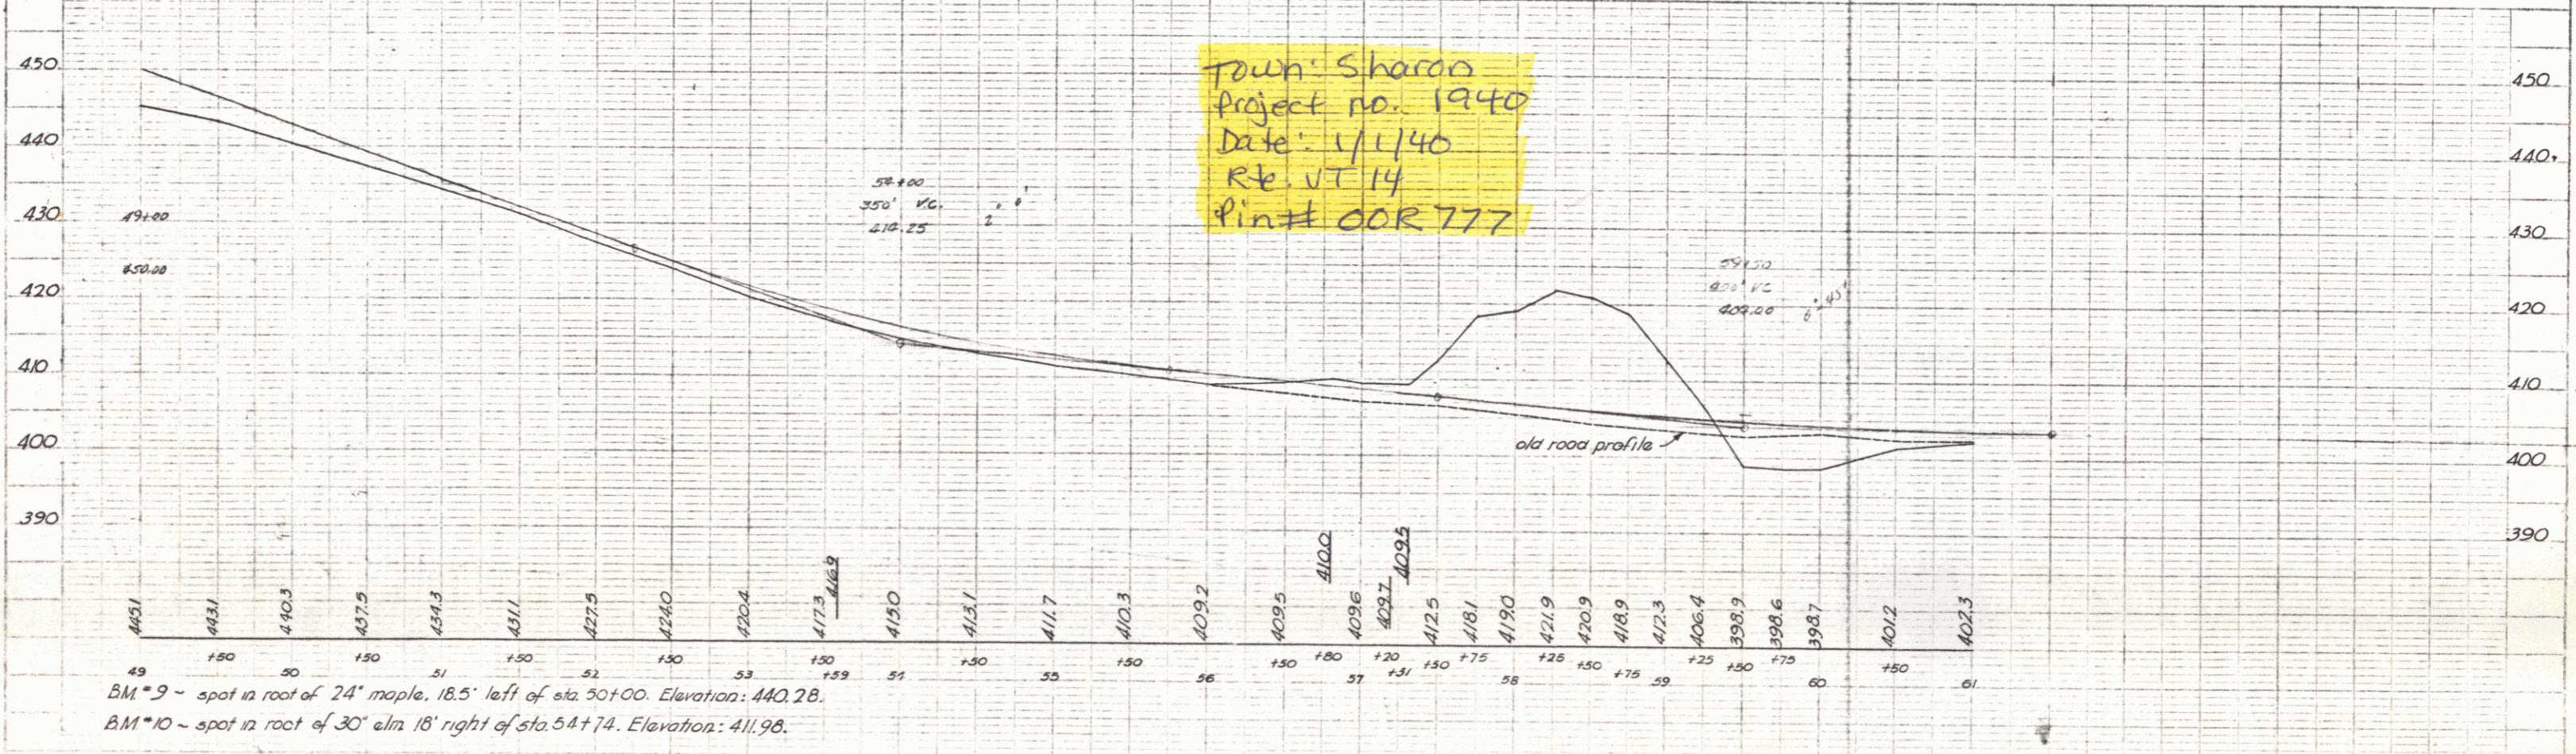 Town: Sharon
Project no. 1940
Date: 1/1/40
Rte. VT 14
Pin# 00R777
450
440
430
420
410
400
390
450
440
430
420
410
400
390
49+00
450.00
54+00
350' V.C.
414.25
59+50
400' VC
404.00
old road profile
445.1 443.1 440.3 437.5 434.3 431.1 427.5 424.0 420.4 417.3 416.9 415.0 413.1 411.7 410.3 409.2 409.5 410.0 409.6 409.7 409.5 412.5 418.1 419.0 421.9 420.9 418.9 412.3 406.4 398.9 398.6 398.7 401.2 402.3
49 +50 50 +50 51 +50 52 +50 53 +50 +59 54 +50 55 +50 56 +50 +80 57 +20 +31 +50 +75 58 +25 +50 +75 59 +25 +50 +75 60 +50 61
B.M.#9 ~ spot in root of 24" maple, 18.5' left of sta. 50+00. Elevation: 440.28.
B.M.#10 ~ spot in root of 30" elm 18' right of sta. 54+74. Elevation: 411.98.